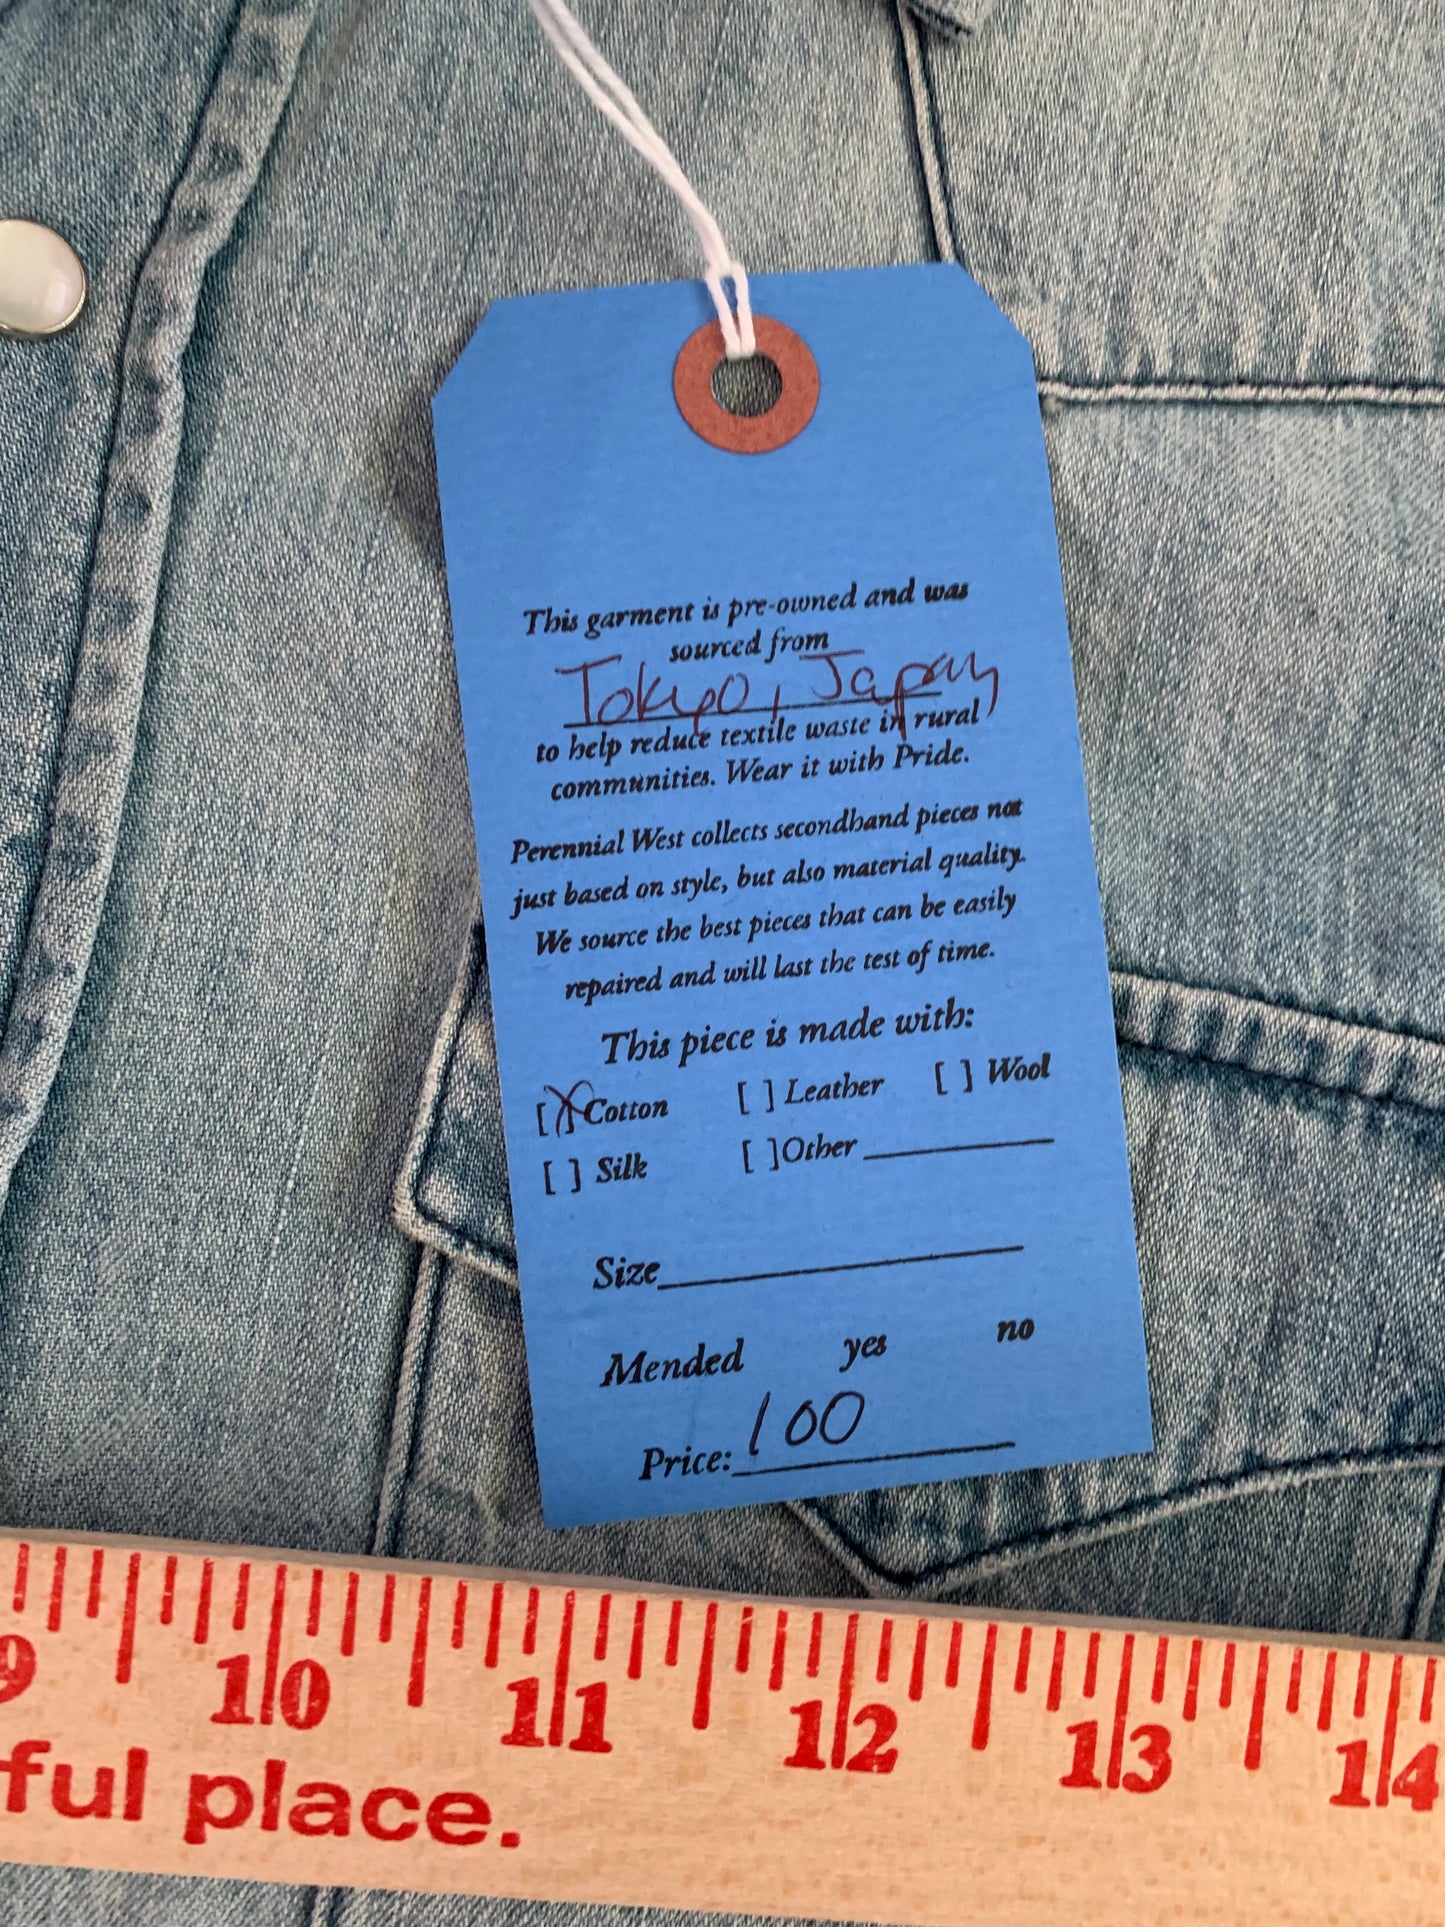 This garment is pre-owned and was
sourced from
Tokyo, Japan
to help reduce textile waste in rural
communities. Wear it with Pride.
Perennial West collects secondhand pieces not
just based on style, but also material quality.
We source the best pieces that can be easily
repaired and will last the test of time.
This piece is made with:
[X] Cotton [ ] Leather [ ] Wool
[ ] Silk [ ]Other
Size
Mended yes no
Price: 100
9 10 11 12 13 14
ful place.